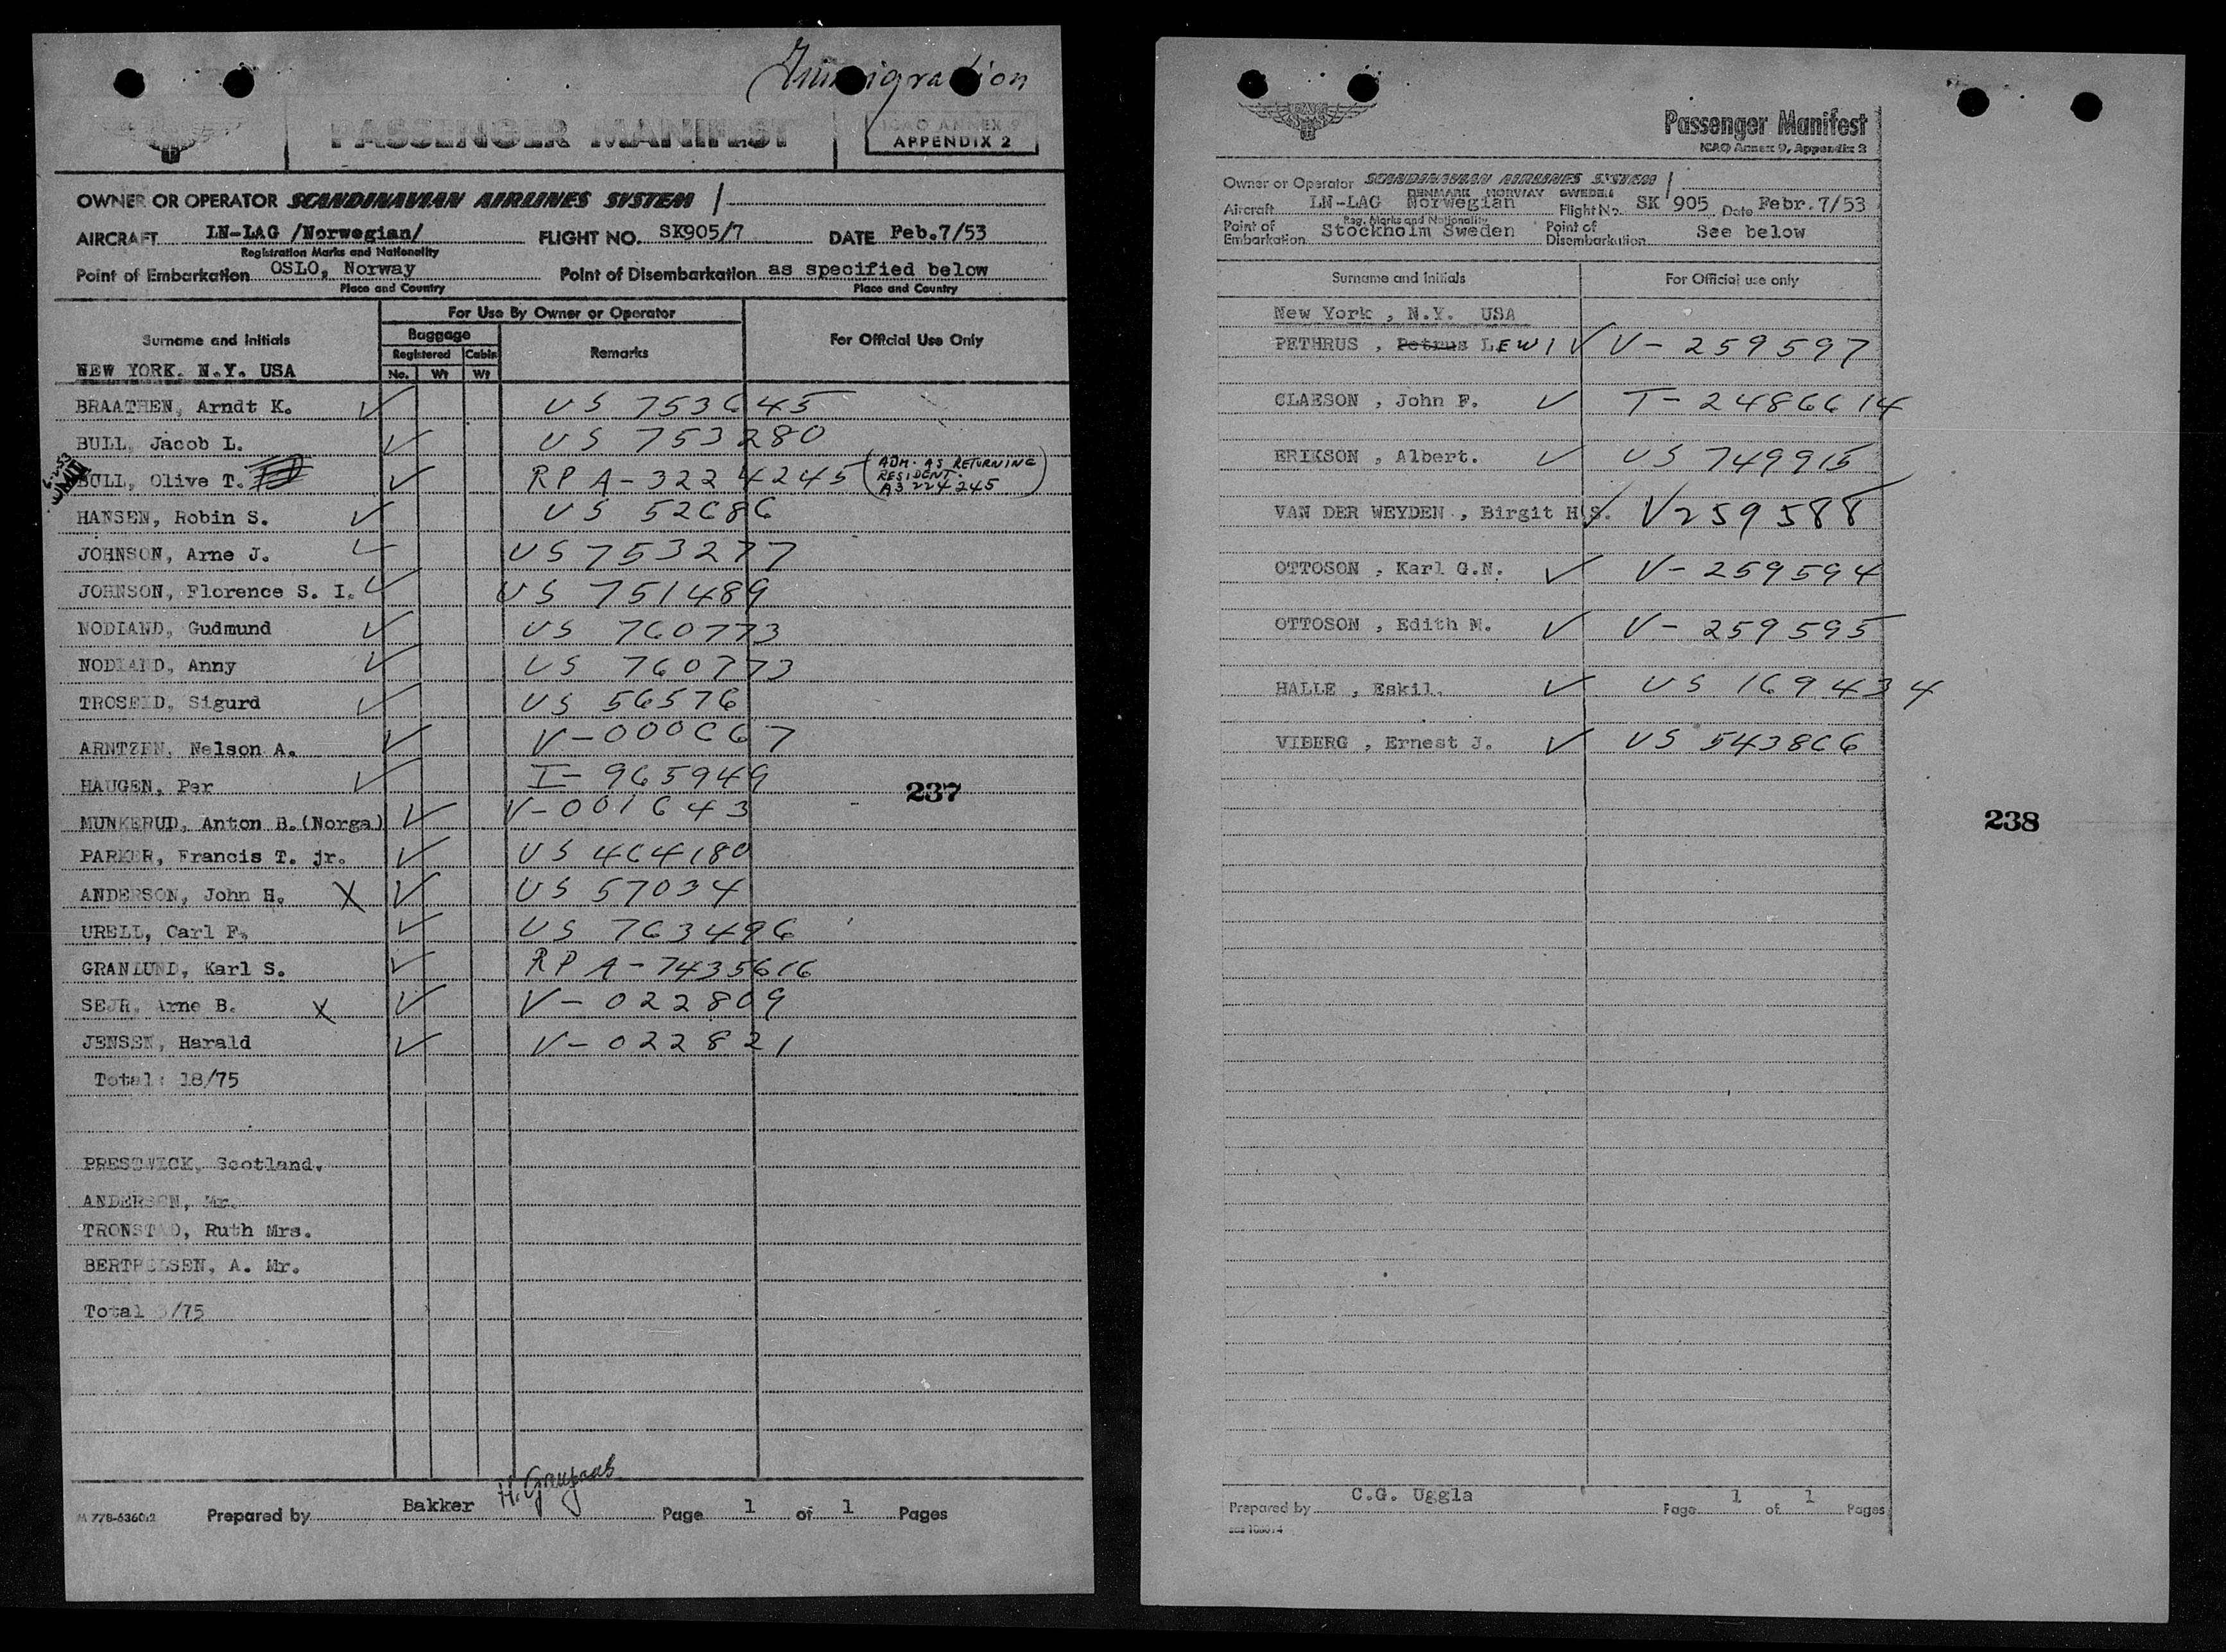 Immigration
PASSENGER MANIFEST
ICAO ANNEX 9
APPENDIX 2
OWNER OR OPERATOR SCANDINAVIAN AIRLINES SYSTEM
AIRCRAFT LN-LAG /Norwegian/ FLIGHT NO. SK905/7 DATE Feb.7/53
Registration Marks and Nationality
Point of Embarkation OSLO, Norway Point of Disembarkation as specified below
Place and Country Place and Country
For Use By Owner or Operator
Surname and Initials Baggage Remarks For Official Use Only
Registered Cabin
NEW YORK. N.Y. USA No. Wt Wt
BRAATHEN, Arndt K. US 753645
BULL, Jacob L. US 753280
BULL, Olive T. RP A-3224245 (ADM. AS RETURNING
RESIDENT
A3 224 245)
HANSEN, Robin S. US 52686
JOHNSON, Arne J. US 753277
JOHNSON, Florence S. I. US 751489
NODLAND, Gudmund US 760773
NODLAND, Anny US 760773
TROSEID, Sigurd US 56576
ARNTZEN, Nelson A. V-000667
HAUGEN, Per I-965949
237
MUNKERUD, Anton B.(Norga) V-001643
PARKER, Francis T. jr. US 464180
ANDERSON, John H. X US 57034
URELL, Carl F. US 763496
GRANLUND, Karl S. RP A-7435616
SEJR, Arne B. X V-022809
JENSEN, Harald V-022821
Total: 18/75
PRESTWICK, Scotland.
ANDERSEN, Mr.
TRONSTAD, Ruth Mrs.
BERTHELSEN, A. Mr.
Total 3/75
M 778-6360:2 Prepared by Bakker Page 1 of 1 Pages
Passenger Manifest
ICAO Annex 9, Appendix 2
Owner or Operator SCANDINAVIAN AIRLINES SYSTEM
DENMARK NORWAY SWEDEN
Aircraft LN-LAG Norwegian Flight No. SK 905 Date Febr.7/53
Reg. Marks and Nationality
Point of Embarkation Stockholm Sweden Point of Disembarkation See below
Surname and Initials For Official use only
New York , N.Y. USA
PETHRUS , Petrus LEWI V-259597
CLAESON , John F. T-2486614
ERIKSON , Albert. US 749915
VAN DER WEYDEN , Birgit H.S. V259588
OTTOSON , Karl G.N. V-259594
OTTOSON , Edith M. V-259595
HALLE , Eskil. US 169434
VIBERG , Ernest J. US 543866
238
Prepared by C.G. Uggla Page 1 of 1 Pages